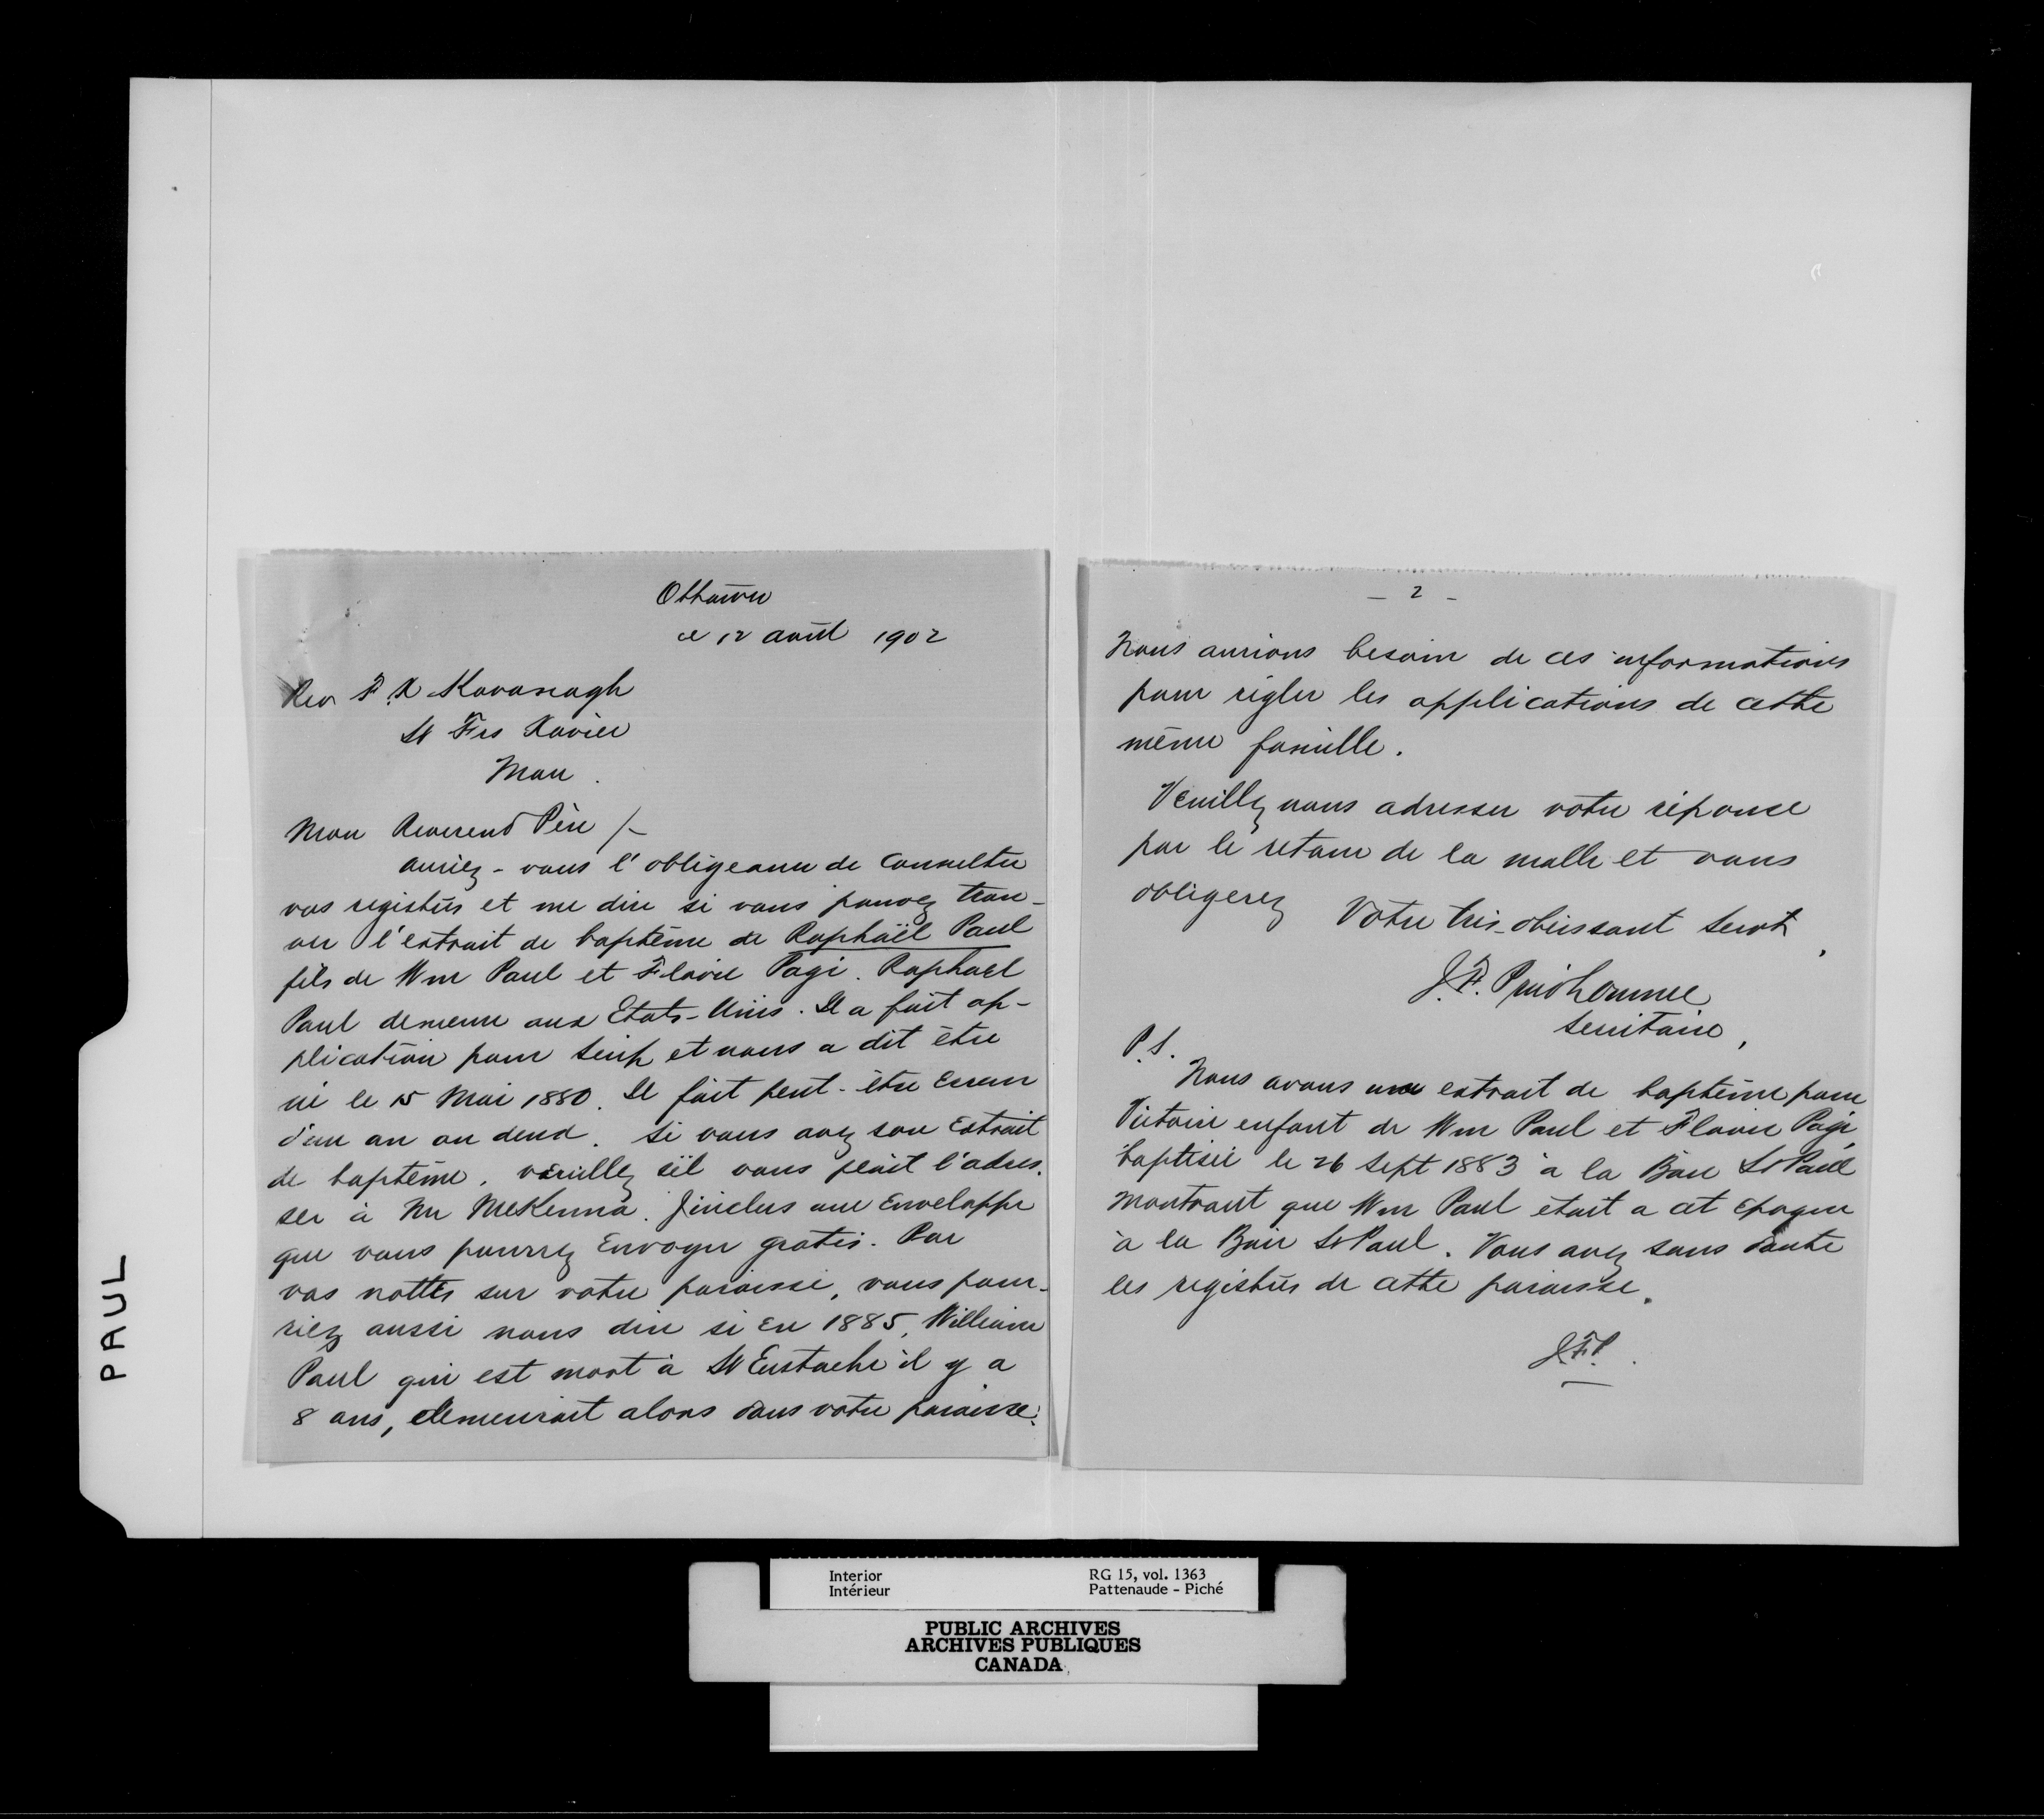 Ottawa
ce 12 avril 1902
Rev F. X Kavanagh
St Frs Xavier
Man.
Mon Reverend Père /-
auriez-vous l'obligeance de consulter
vos registres et me dire si vous pouvez trou-
ver l'extrait de baptême de Raphaël Paul
fils de Wm Paul et Flavie Pagé. Raphael
Paul demeure aux Etats-Unis. Il a fait ap-
plication pour scrip et nous a dit être
né le 15 Mai 1880. Il fait peut-être erreur
d'un an ou deux. Si vous avez son extrait
de baptême, veuillez s'il vous plait l'adres-
ser à Mr McKenna. J'inclus une enveloppe
que vous pourrez envoyer gratis. Par
vos nottes sur votre paroisse, vous pour-
riez aussi nous dire si en 1885, William
Paul qui est mort à St Eustache il y a
8 ans, demeurait alors dans votre paroisse.
- 2 -
Nous aurions besoin de ces informations
pour régler les applications de cette
même famille.
Veuillez nous adresser votre réponse
par le retour de la malle et vous
obligerez Votre très-obéissant Servt,
J.F. Prudhomme
Secrétaire,
P.S.
Nous avons un extrait de baptême pour
Victoire enfant de Wm Paul et Flavie Pagé
baptisée le 26 Sept 1883 à la Baie St Paul
montrant que Wm Paul était a cet epoque
à la Baie St Paul. Vous avez sans doute
les registres de cette paroisse.
J.F.P.
PAUL
Interior RG 15, vol. 1363
Intérieur Pattenaude - Piché
PUBLIC ARCHIVES
ARCHIVES PUBLIQUES
CANADA